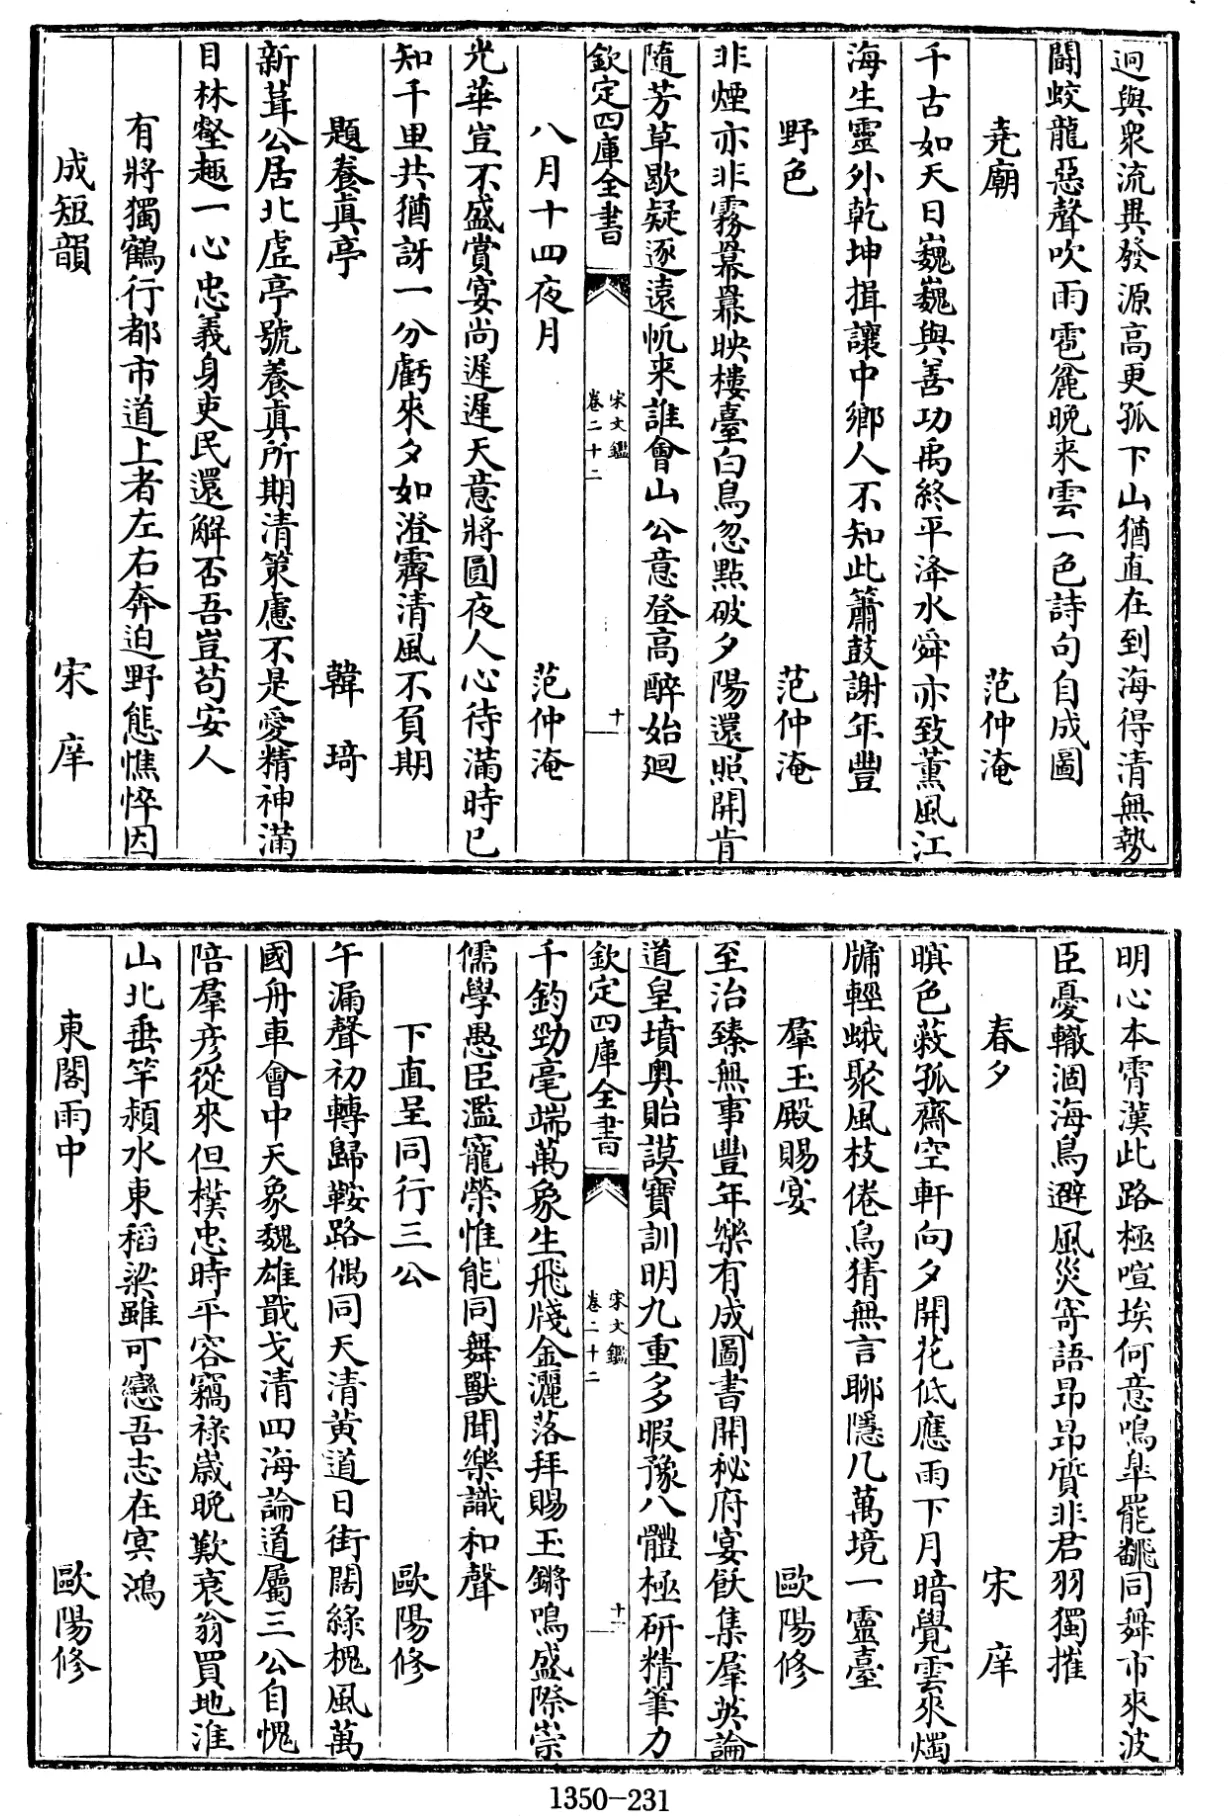 迥與衆流異發源高更孤下山猶直在到海得清無勢
鬬蛟龍惡聲吹雨雹麄晚来雲一色詩句自成圖
堯廟 范仲淹
千古如天日巍巍與善功禹終平洚水舜亦致薫風江
海生靈外乾坤揖讓中鄉人不知此簫鼓謝年豐
野色 范仲淹
非煙亦非霧羃羃映樓臺白鳥忽點破夕陽還照開肯
隨芳草歇疑逐遠帆来誰會山公意登高醉始廻
欽定四庫全書 宋文鑑 卷二十二 十
八月十四夜月 范仲淹
光華豈不盛賞宴尚遲遲天意將圓夜人心待滿時已
知千里共猶訝一分虧來夕如澄霽清風不負期
題養真亭 韓琦
新葺公居北虚亭號養真所期清策慮不是愛精神滿
目林壑趣一心忠義身吏民還解否吾豈苟安人
有將獨鶴行都市道上者左右奔迫野態憔悴因
成短韻 宋庠
明心本霄漢此路極喧埃何意鳴臯罷翻同舞市來波
臣憂轍涸海鳥避風災寄語昂昂質非君羽獨摧
春夕 宋庠
暝色蔽孤齋空軒向夕開花低應雨下月暗覺雲來燭
牗輕蛾聚風枝倦鳥猜無言聊隠几萬境一靈臺
羣玉殿賜宴 歐陽修
至治臻無事豐年樂有成圖書開秘府宴飫集羣英論
道皇墳奥貽謨寶訓明九重多暇豫八體極研精筆力
欽定四庫全書 宋文鑑 卷二十二 十一
千鈞勁毫端萬象生飛牋金灑落拜賜玉鏘鳴盛際崇
儒學愚臣濫寵榮惟能同舞獸聞樂識和聲
下直呈同行三公 歐陽修
午漏聲初轉歸鞍路偶同天清黄道日街闊緑槐風萬
國舟車會中天象魏雄戢戈清四海論道屬三公自愧
陪羣彦從來但樸忠時平容竊祿嵗晚歎衰翁買地淮
山北垂竿潁水東稻粱雖可戀吾志在冥鴻
東閣雨中 歐陽修
1350-231